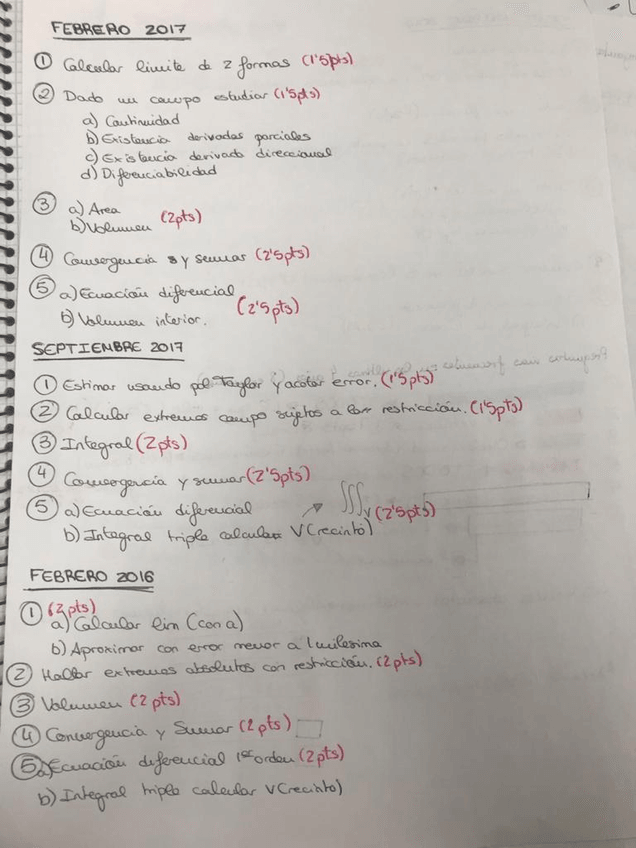 FEBRERO 2017
① Calcular límite de 2 formas (1'5pts)
② Dado un campo estudiar (1'5pts)
a) Continuidad
b) Existencia derivadas parciales
c) Existencia derivada direccional
d) Diferenciabilidad
③ a) Area
b) Volumen (2pts)
④ Convergencia y sumar (2'5pts)
⑤ a) Ecuación diferencial
b) Volumen interior. (2'5pts)
SEPTIEMBRE 2017
① Estimar usando pol Taylor y acotar error. (1'5pts)
② Calcular extremos campo sujetos a restricción. (1'5pts)
③ Integral (2pts)
④ Convergencia y sumar (2'5pts)
⑤ a) Ecuación diferencial ∭V (2'5pts)
b) Integral triple calcular V (recinto)
FEBRERO 2016
① (2pts)
a) Calcular lim (con a)
b) Aproximar con error menor a 1 milésima
② Hallar extremos absolutos con restricción. (2pts)
③ Volumen (2pts)
④ Convergencia y Sumar (2pts)
⑤ a) Ecuación diferencial 1er orden (2pts)
b) Integral triple calcular V (recinto)